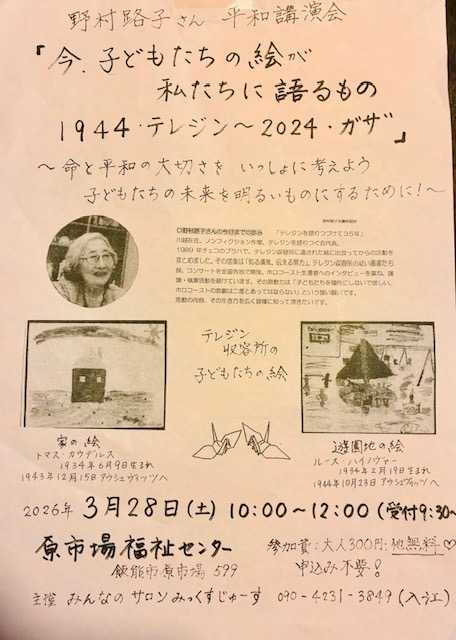 野村路子さん 平和講演会
『今、子どもたちの絵が
私たちに語るもの
1944・テレジン～2024・ガザ』
～命と平和の大切さを いっしょに考えよう
子どもたちの未来を明るいものにするために！～
◎野村路子さんの今日までの歩み 「テレジンを語りつづけて35年」
川越在住。ノンフィクション作家、テレジンを語りつぐ会代表。
1989年チェコのプラハで、テレジン収容所に遺された絵に出会ってからの活動を
テレジン
収容所の
子どもたちの絵
家の絵
トマス・カウデルス
1934年6月9日生まれ
1943年12月15日アウシュヴィッツへ
遊園地の絵
ルース・ハイノヴァー
1934年2月19日生まれ
1944年10月23日アウシュヴィッツへ
2026年 3月28日(土) 10:00～12:00 (受付9:30～
原市場福祉センター
飯能市原市場 599
参加費：大人300円・他無料♡
申込み不要！
主催 みんなのサロンみっくすじゅーす 090-4231-3849 (入江)